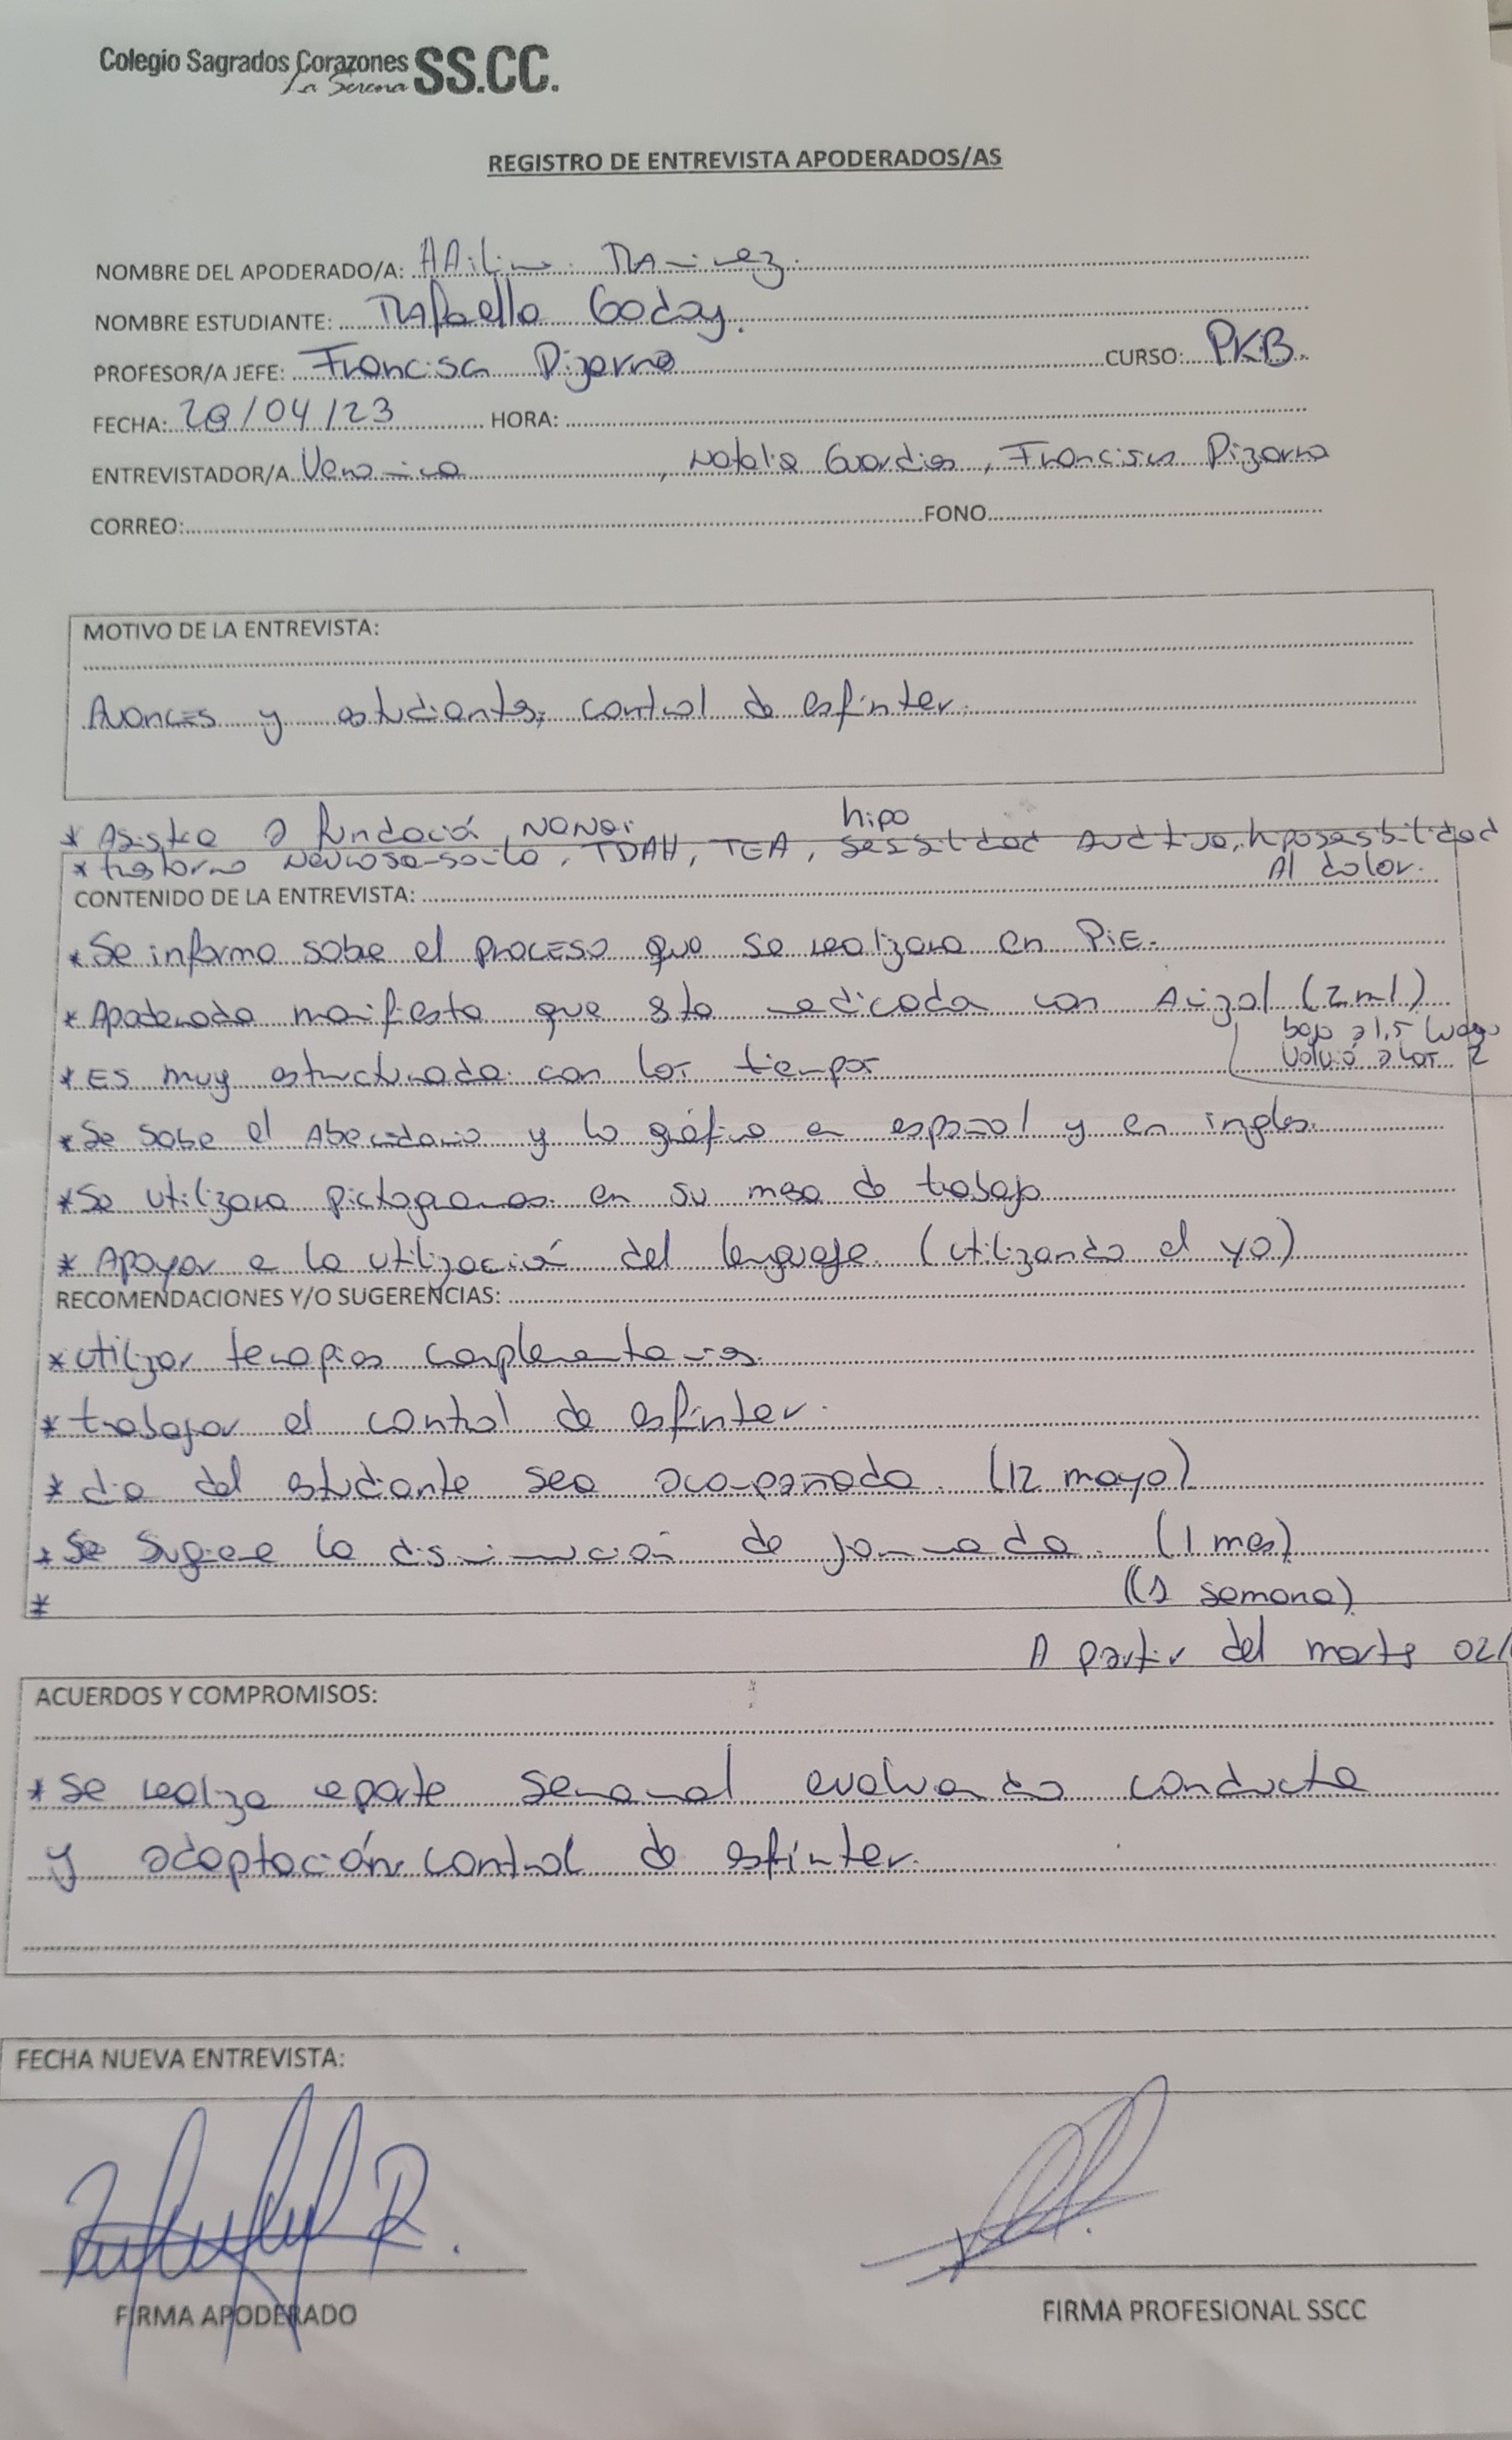 Colegio Sagrados Corazones SS.CC.
La Serena
REGISTRO DE ENTREVISTA APODERADOS/AS
NOMBRE DEL APODERADO/A: Ramirez.
NOMBRE ESTUDIANTE: Rafaella Godoy.
PROFESOR/A JEFE: Francisca Pizarro CURSO: PKB.
FECHA: 28/04/23 HORA:
ENTREVISTADOR/A Veronica , Natalia Guardia, Francisca Pizarro
CORREO: FONO
MOTIVO DE LA ENTREVISTA:
Avances y estudiantes; control de esfinter.
* Asiste a fundació
hipo
* trastorno , TDAH, TEA, sessitidad Auditiva, hiposesibtidad
Al dolor.
CONTENIDO DE LA ENTREVISTA:
* Se informa sobre el proceso que se realizara en PiE.
* Apoderada manifiesta que sta medicada con (2 ml)
bajo a 1,5 luego
volvió a los 2
* Es muy estructurada con los tiempos
* Se sabe el Abecedario y lo gráfica en español y en ingles.
* Se utilizara pictogramas en su mesa de trabajo
* Apoyar a la utilización del lenguaje. (utilizando el yo)
RECOMENDACIONES Y/O SUGERENCIAS:
* utilizar terapias complementarias.
* trabajar el control de esfinter.
* dia del estudiante sea acompañada. (12 mayo)
* Se sugiere la disminución de jornada. (1 mes)
* (1 semana)
A partir del martes 02/
ACUERDOS Y COMPROMISOS:
* Se realiza reporte semanal evaluando conducta
y adaptación control de esfinter.
FECHA NUEVA ENTREVISTA:
FIRMA APODERADO
FIRMA PROFESIONAL SSCC